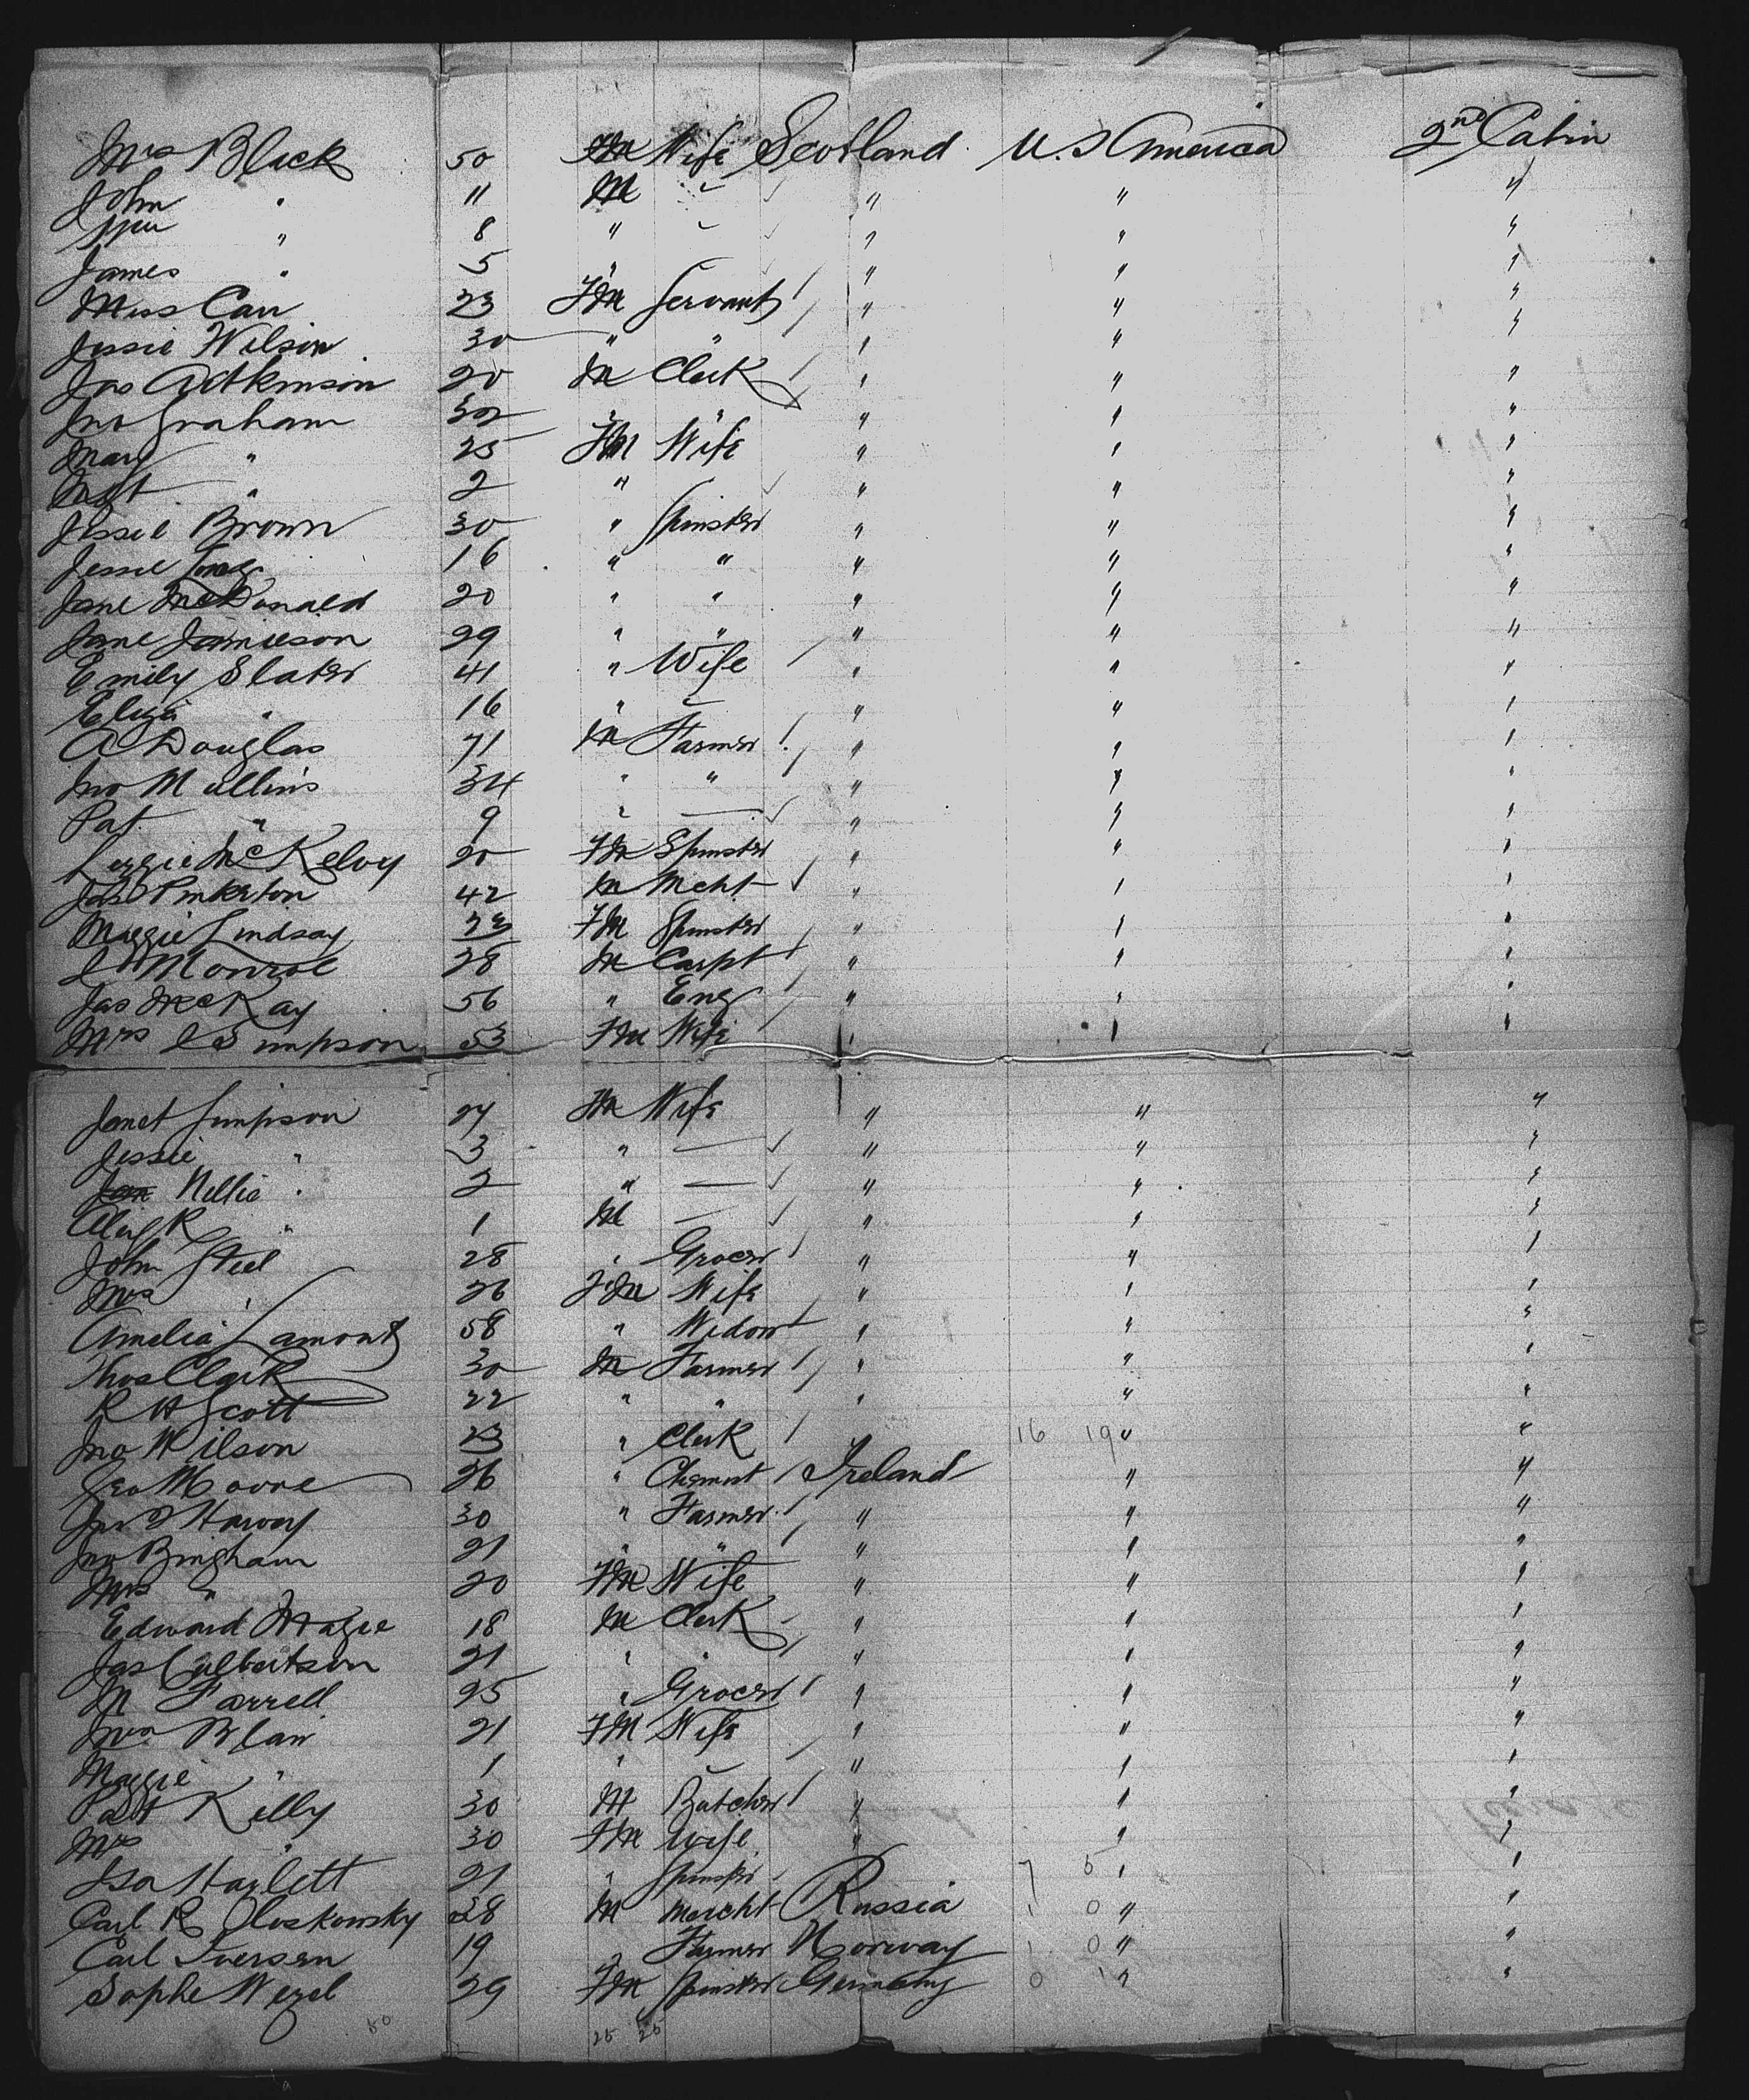 Mrs Black 50 Fm Wife Scotland U.S America 2nd Cabin
John " 11 M - " " "
Wm " 8 " - " " "
James " 5 " - " " "
Miss Carr 23 Fm Servant " " "
Jessie Wilson 30 " " " " "
Jas Aitkinson 20 M Clerk " " "
Jno Graham 32 " " " " "
Mary " 25 Fm Wife " " "
Mgt " 2 " " " "
Jessie Brown 30 " Spinster " " "
Jessie 16 " " " " "
Jane McDonald 20 " " " " "
Jane Jamieson 29 " " " " "
Emily Slater 41 " Wife " " "
Eliza " 16 " - " " "
A Douglas 71 M Farmer " " "
Jno Mullins 34 " " " " "
Pat " 9 " — " " "
Lizzie McKelvy 20 Fm Spinster " " "
Jas Pinkerton 42 M Mcht " " "
Maggie Lindsay 23 Fm Spinster " " "
Monroe 28 M Carpt " " "
Jas McKay 56 " Eng " " "
Mrs Simpson 53 Fm Wife " " "
Janet Simpson 27 Fm Wife " " "
Jessie " 3 " — " " "
Nellie " 2 " — " " "
R " 1 M — " " "
John Steel 28 " Grocer " " "
Mrs " 26 Fm Wife " " "
Amelia Lamont 58 " Widow " " "
Thos Clark 30 M Farmer " " "
R H Scott 22 " " " " "
Jno Wilson 23 " Clerk " 16 19 " "
Geo Moore 26 " Chemist Ireland " "
Harvey 30 " Farmer " " "
Jno Bingham 21 " " " " "
Mrs " 20 Fm Wife " " "
Edward Magee 18 M Clerk " " "
Jas Culbertson 21 " " " " "
M Farrell 25 " Grocer " " "
Mrs Blair 21 Fm Wife " " "
Maggie " 1 " - " " "
Patt Kelly 30 M Butcher " " "
Mrs " 30 Fm Wife " " "
Isa Harlett 21 " Spinster 7 5 " "
Carl R Oloskowsky 38 M Mercht Russia 1 0 " "
Carl Iversen 19 " Farmer Norway 1 0 " "
Sophe Wezel 29 Fm Spinster Germany 0 1 " "
50 25 25